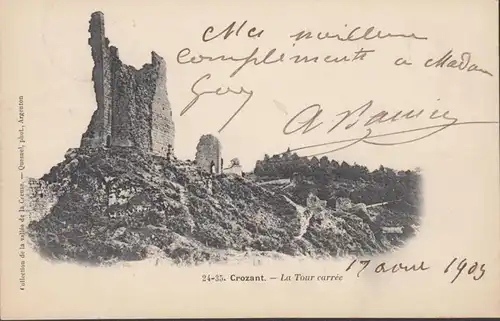 Mes meilleurs
compliments a Madame
Guy
24-35. Crozant. — La Tour carrée
17 aout 1903
Collection de la vallée de la Creuse. — Quesnel, phot., Argenton